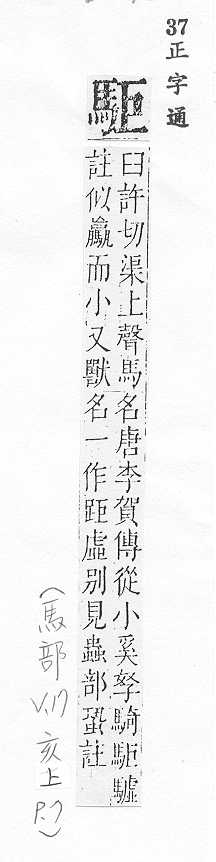 37
正字通
駏
臼許切渠上聲馬名唐李賀傳從小奚孥騎駏驉
註似驘而小又獸名一作距虛別見蟲部蛩註
(馬部
V.17
亥上
P.7)